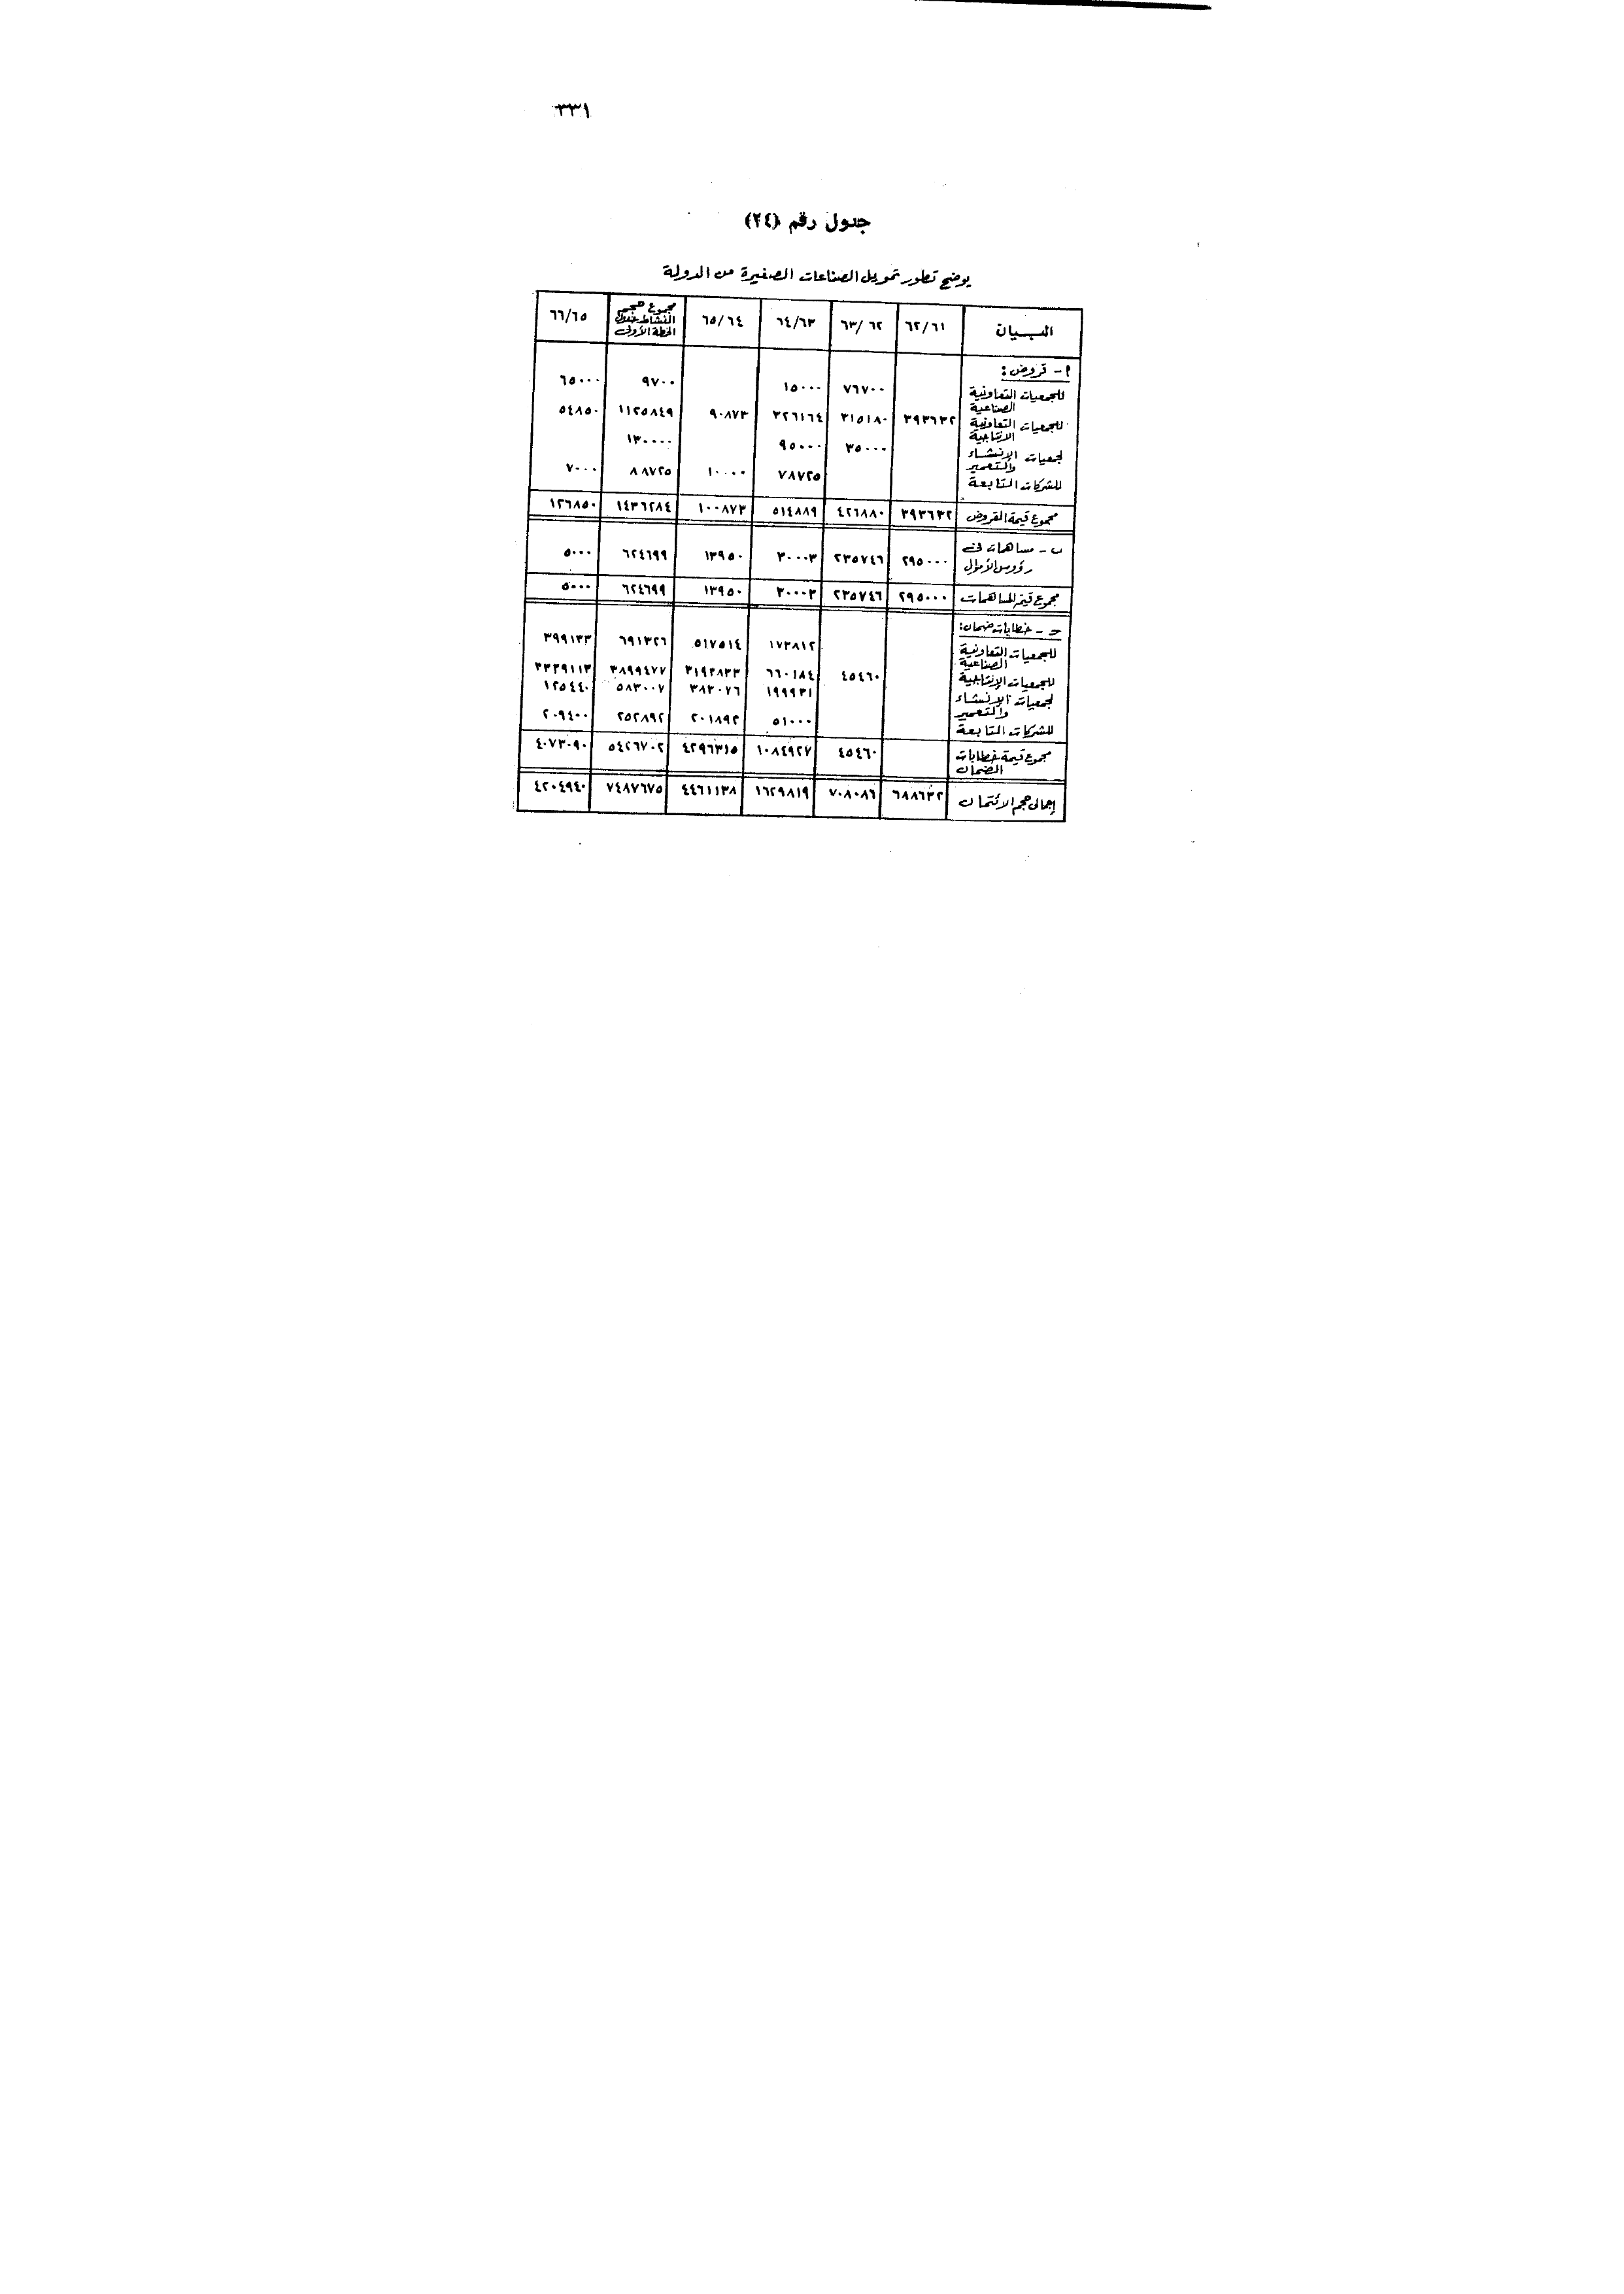 ٣٣١
جدول رقم (٢٤)
يوضح تطور تمويل الصناعات الصغيرة من الدولة
البيان ٦٢/٦١ ٦٣/٦٢ ٦٤/٦٣ ٦٥/٦٤ مجموع حجم النشاط خلال الخطة الأولى ٦٦/٦٥
ا - قروض :
للجمعيات التعاونية الصناعية ٧٦٧٠٠ ١٥٠٠٠ ٩٧٠٠ ٦٥٠٠٠
للجمعيات التعاونية الانتاجية ٣٩٣٦٣٢ ٣١٥١٨٠ ٣٢٦١٦٤ ٩٠٨٧٣ ١١٢٥٨٤٩ ٥٤٨٥٠
لجمعيات الإنشاء والتعمير ٣٥٠٠٠ ٩٥٠٠٠ ١٣٠٠٠٠
للشركات التابعة ٧٨٧٢٥ ١٠٠٠٠ ٨٨٧٢٥ ٧٠٠٠
مجموع قيمة القروض ٣٩٣٦٣٢ ٤٢٦٨٨٠ ٥١٤٨٨٩ ١٠٠٨٧٣ ١٤٣٦٢٨٤ ١٢٦٨٥٠
ب - مساهمات فى رؤوس الأموال ٢٩٥٠٠٠ ٢٣٥٧٤٦ ٣٠٠٠٣ ١٣٩٥٠ ٦٢٤٦٩٩ ٥٠٠٠
مجموع قيمة المساهمات ٢٩٥٠٠٠ ٢٣٥٧٤٦ ٣٠٠٠٣ ١٣٩٥٠ ٦٢٤٦٩٩ ٥٠٠٠
حـ - خطابات ضمان :
للجمعيات التعاونية الصناعية ١٧٣٨١٢ ٥١٧٥١٤ ٦٩١٣٢٦ ٣٩٩١٣٣
للجمعيات الإنتاجية ٤٥٤٦٠ ٦٦٠١٨٤ ٣١٩٣٨٣٣ ٣٨٩٩٤٧٧ ٣٣٣٩١١٣
لجمعيات الإنشاء والتعمير ١٩٩٩٣١ ٣٨٣٠٧٦ ٥٨٣٠٠٧ ١٢٥٤٤٠
للشركات التابعة ٥١٠٠٠ ٢٠١٨٩٢ ٢٥٢٨٩٢ ٢٠٩٤٠٠
مجموع قيمة خطابات الضمان ٤٥٤٦٠ ١٠٨٤٩٢٧ ٤٢٩٦٣١٥ ٥٤٢٦٧٠٢ ٤٠٧٣٠٩٠
إجمالى حجم الائتمان ٦٨٨٦٣٢ ٧٠٨٠٨٦ ١٦٢٩٨١٩ ٤٤٦١١٣٨ ٧٤٨٧٦٧٥ ٤٢٠٤٩٤٠